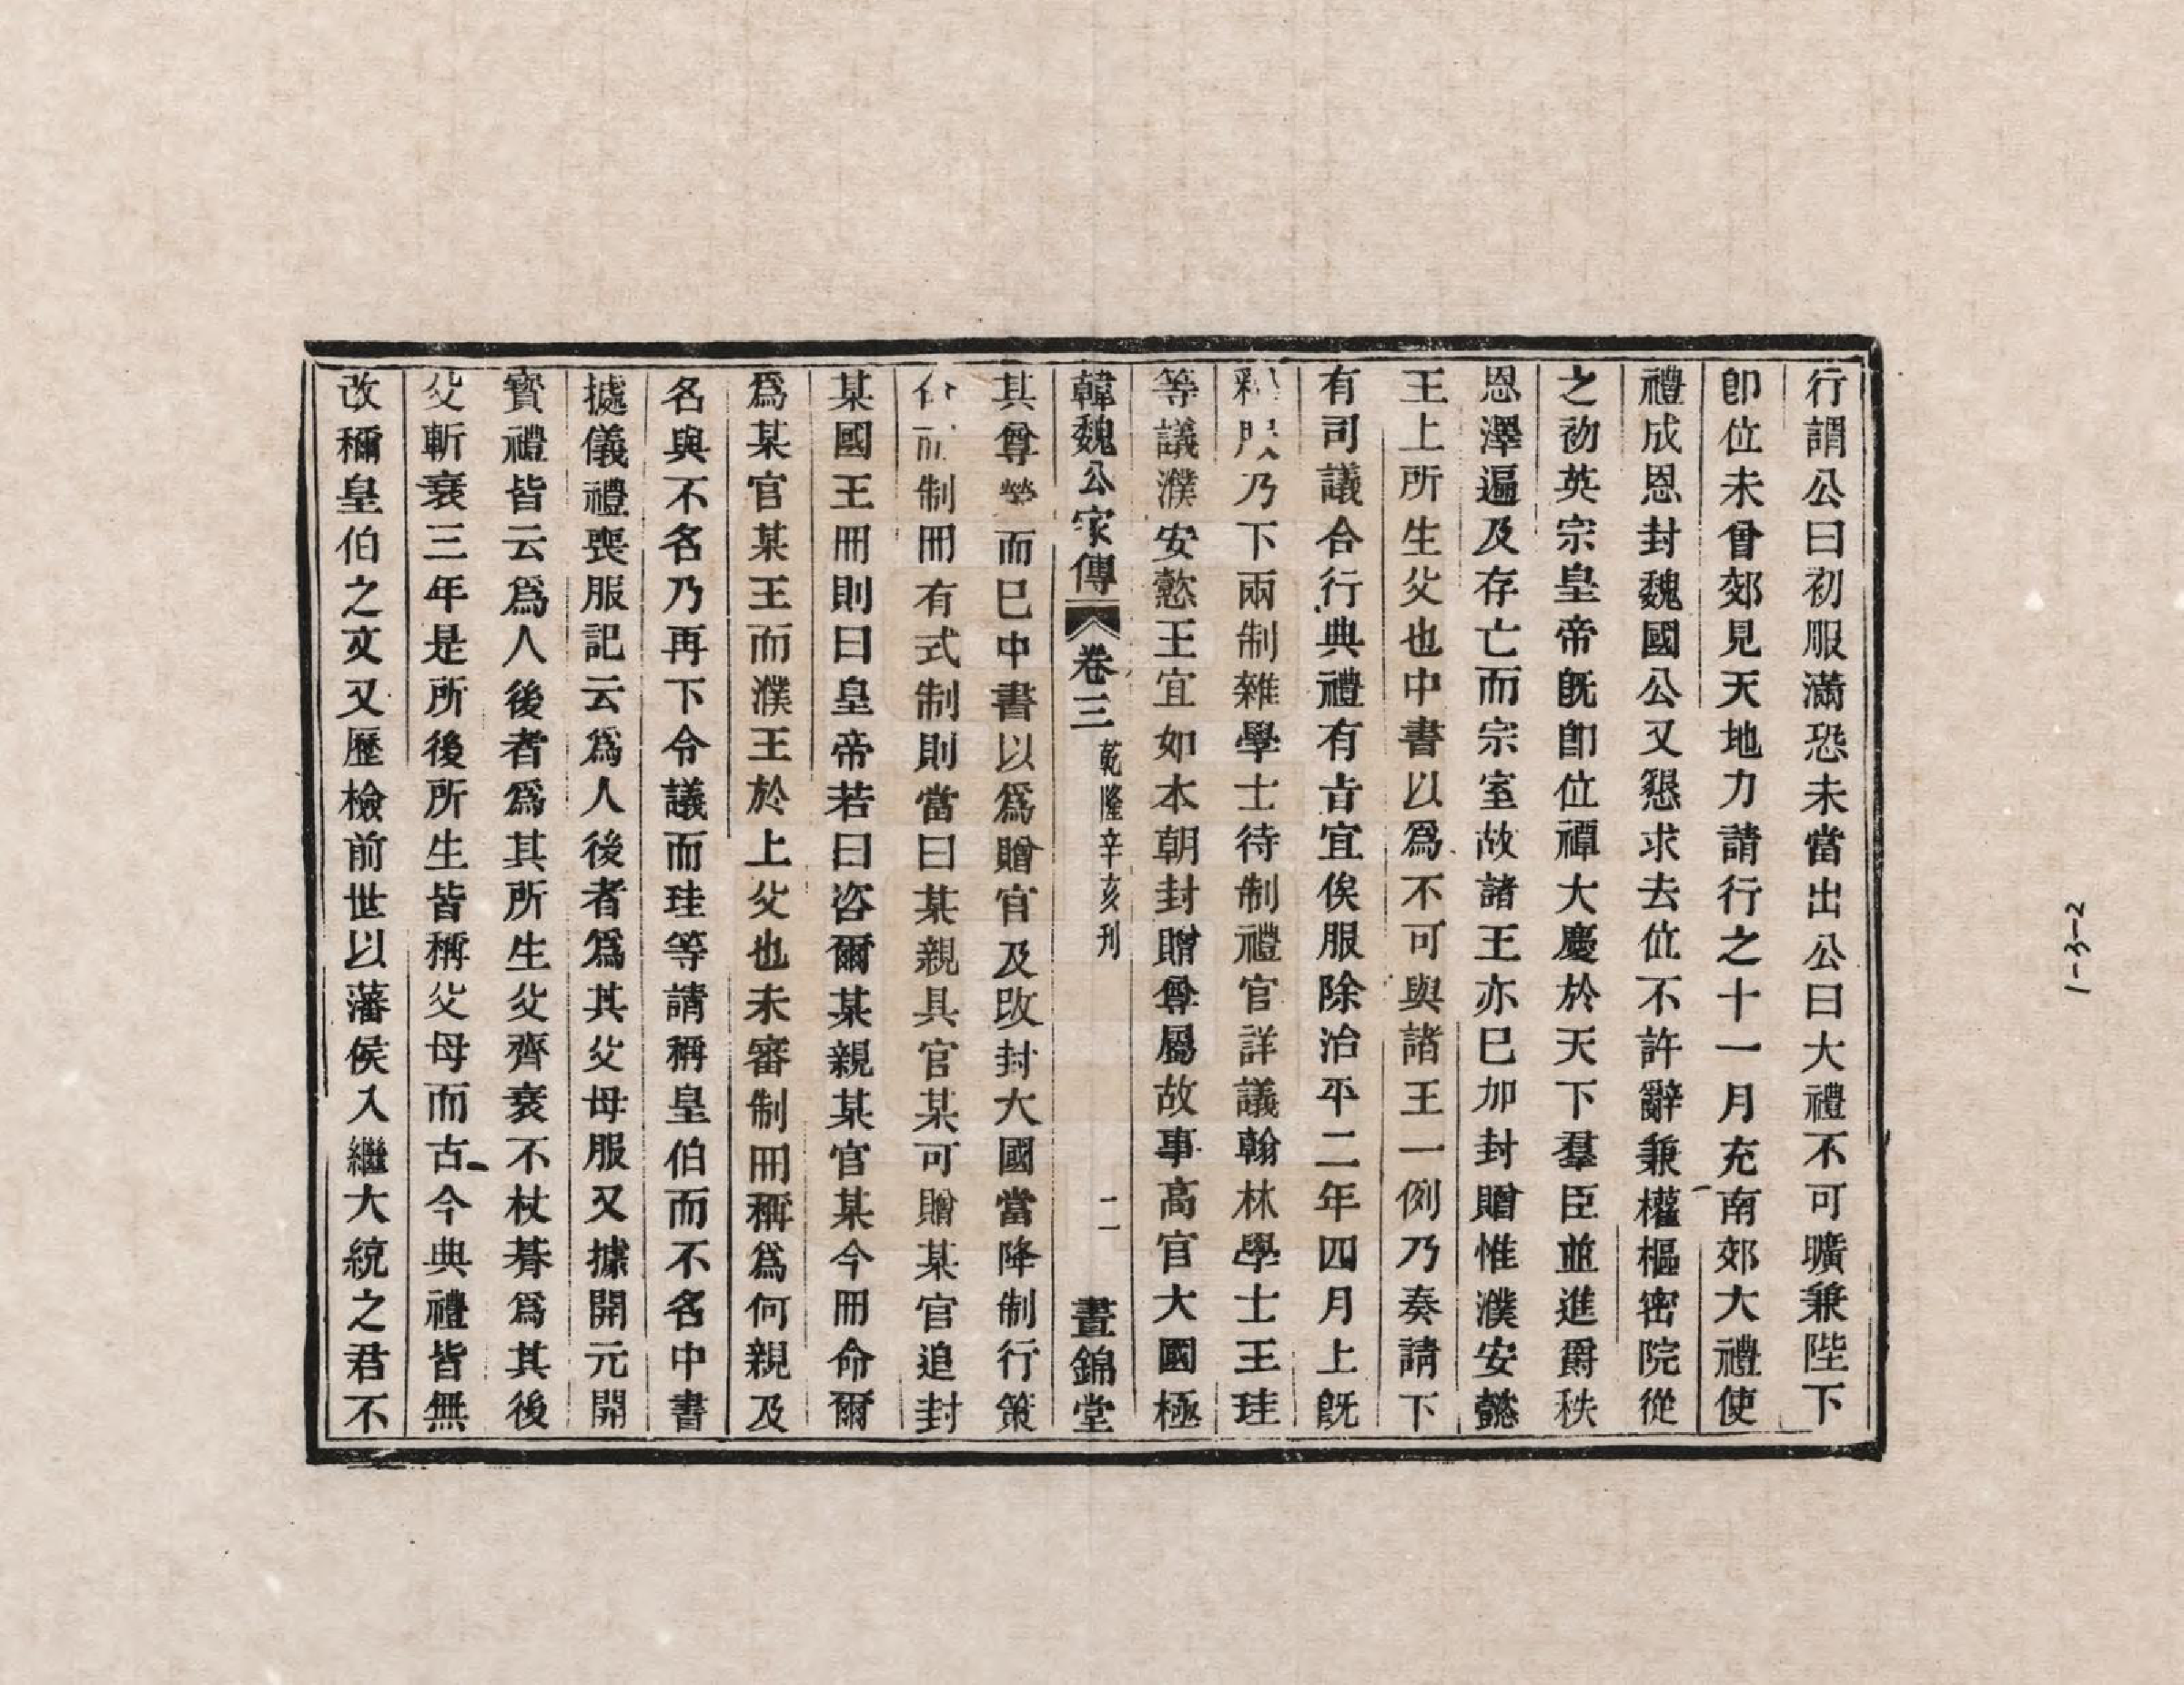 行謂公曰初服滿恐未當出公曰大禮不可曠兼陛下
卽位未曾郊見天地力請行之十一月充南郊大禮使
禮成恩封魏國公又懇求去位不許辭兼權樞密院從
之初英宗皇帝旣卽位禫大慶於天下羣臣並進爵秩
恩澤遍及存亡而宗室故諸王亦已加封贈惟濮安懿
王上所生父也中書以爲不可與諸王一例乃奏請下
有司議合行典禮有旨宜俟服除治平二年四月上旣
釋服乃下兩制雜學士待制禮官詳議翰林學士王珪
等議濮安懿王宜如本朝封贈尊屬故事高官大國極
韓魏公家傳 卷三 乾隆辛亥刊 二 晝錦堂
其尊榮而已中書以爲贈官及改封大國當降制行策
命而制冊有式制則當曰某親具官某可贈某官追封
某國王冊則曰皇帝若曰咨爾某親某官某今冊命爾
爲某官某王而濮王於上父也未審制冊稱爲何親及
名與不名乃再下令議而珪等請稱皇伯而不名中書
據儀禮喪服記云爲人後者爲其父母服又據開元開
寶禮皆云爲人後者爲其所生父齊衰不杖朞爲其後
父斬衰三年是所後所生皆稱父母而古今典禮皆無
改稱皇伯之文又歷檢前世以藩侯入繼大統之君不
1-3-2